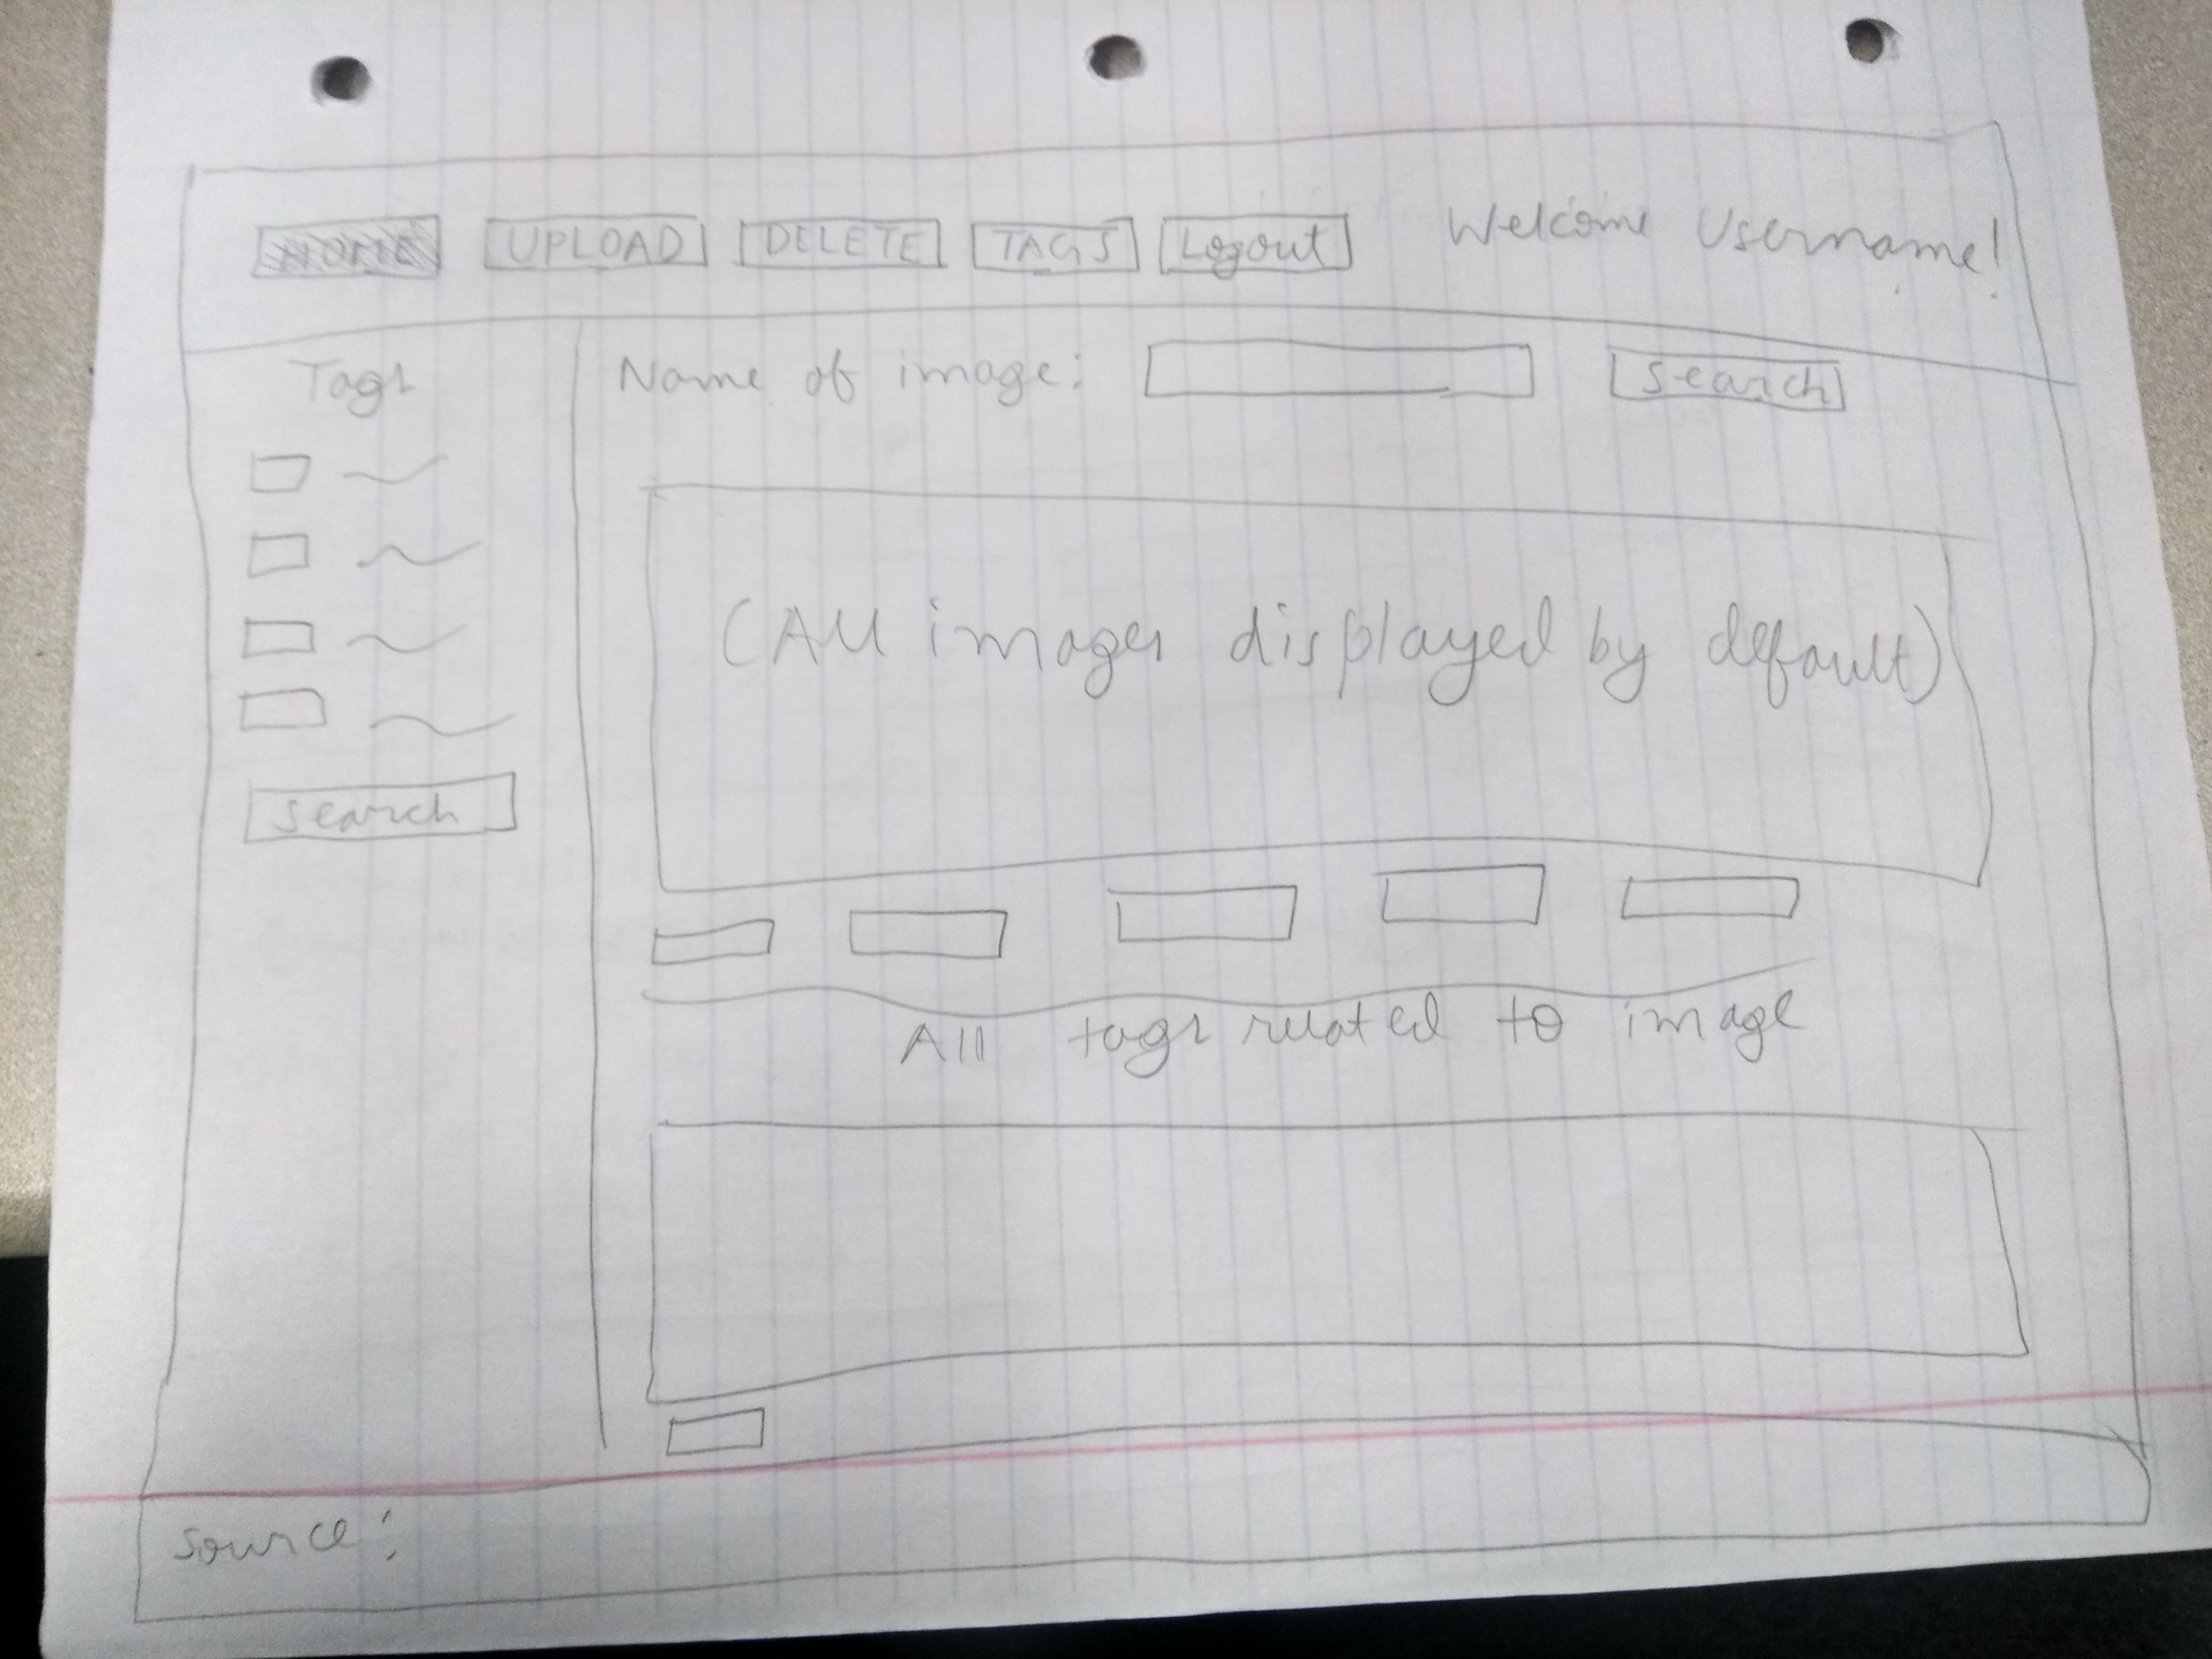 HOME UPLOAD DELETE TAGS Logout Welcome Username!
Tags
Name of image: search
(All images displayed by default)
search
All tags related to image
source: